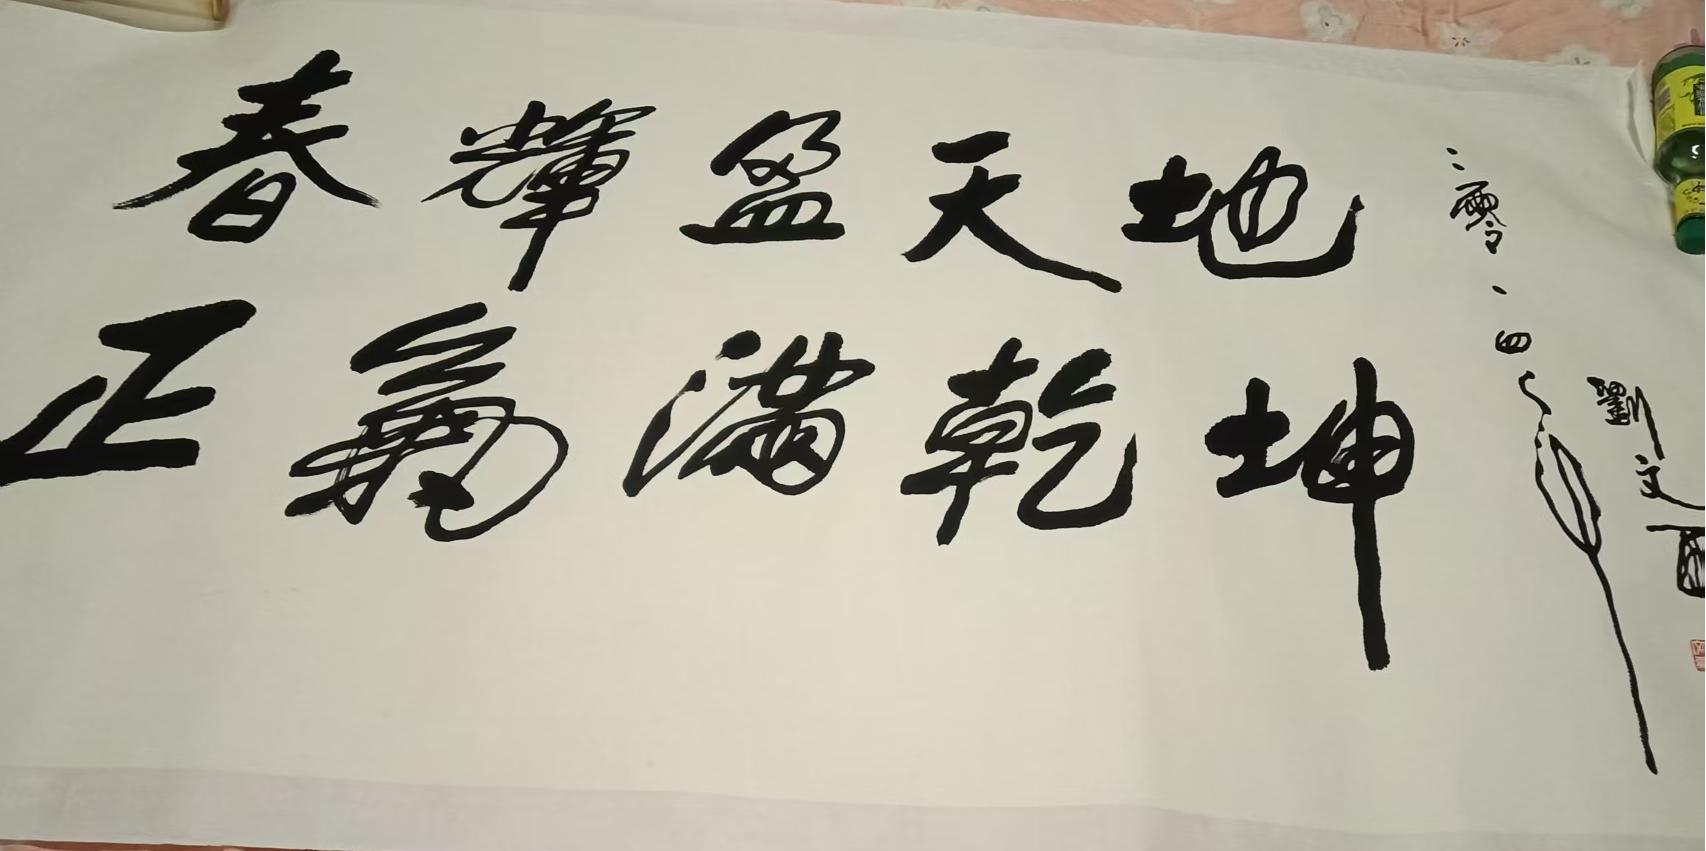 春輝盈天地
正氣滿乾坤
二零一四年
劉文